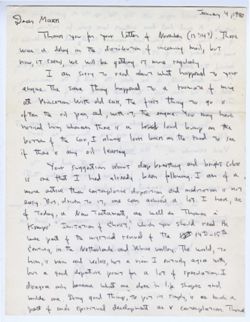 January 4, 1980
Dear Mark
Thank you for your letter of November. There
was a delay in the distribution of incoming mail, but
now it seems, we will be getting it more regularly.
I am sorry to read about what happened to your
engine. The same thing happened to a of mine
with old cars, the first thing to go is
often the oil year old, with it, the engine. You may have
noticed big whenever there is a loud bump on the
bottom of the car, I always look back on the road to see
if there is any oil leaving.
Your suggestions about deep breathing and bright color
is one that I had already been following. I am of a
more active than contemplative disposition and meditation is not
easy. Yes, driven to it, one can achieve a lot. I have, as
of today, a New Testament, as well as Thomas à
Kempis' 'Imitation of Christ,' which you should read. He
was part of the mystical revival of the 14th & 15th
Century in the Netherlands and Rhine valley. The world, to
him, is vain and useless, but a view I entirely agree with,
but a good departure point for a lot of speculation. I
disagree only because what one does in life shapes and
molds one. Doing good things, to put it simply, is as much a
part of one's spiritual development as is contemplation. Thomas